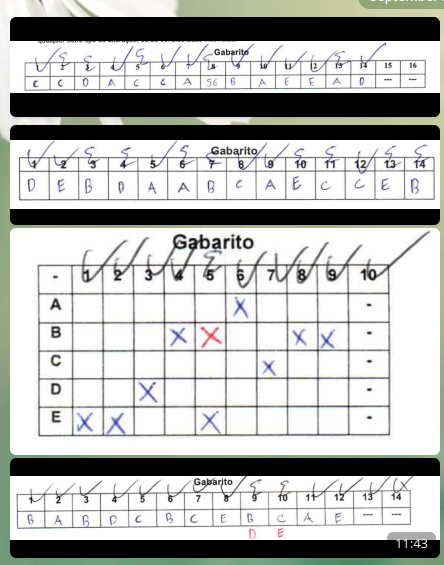 Gabarito
1 2 3 4 5 6 7 8 9 10 11 12 13 14 15 16
C C D A C C A 56 B A E E A D --- ---
Gabarito
1 2 3 4 5 6 7 8 9 10 11 12 13 14
D E B D A A B C A E C C E B
Gabarito
- 1 2 3 4 5 6 7 8 9 10
A X -
B X X X X -
C X -
D X -
E X X X -
Gabarito
1 2 3 4 5 6 7 8 9 10 11 12 13 14
B A B D C B C E B C A E --- ---
D E
11:43